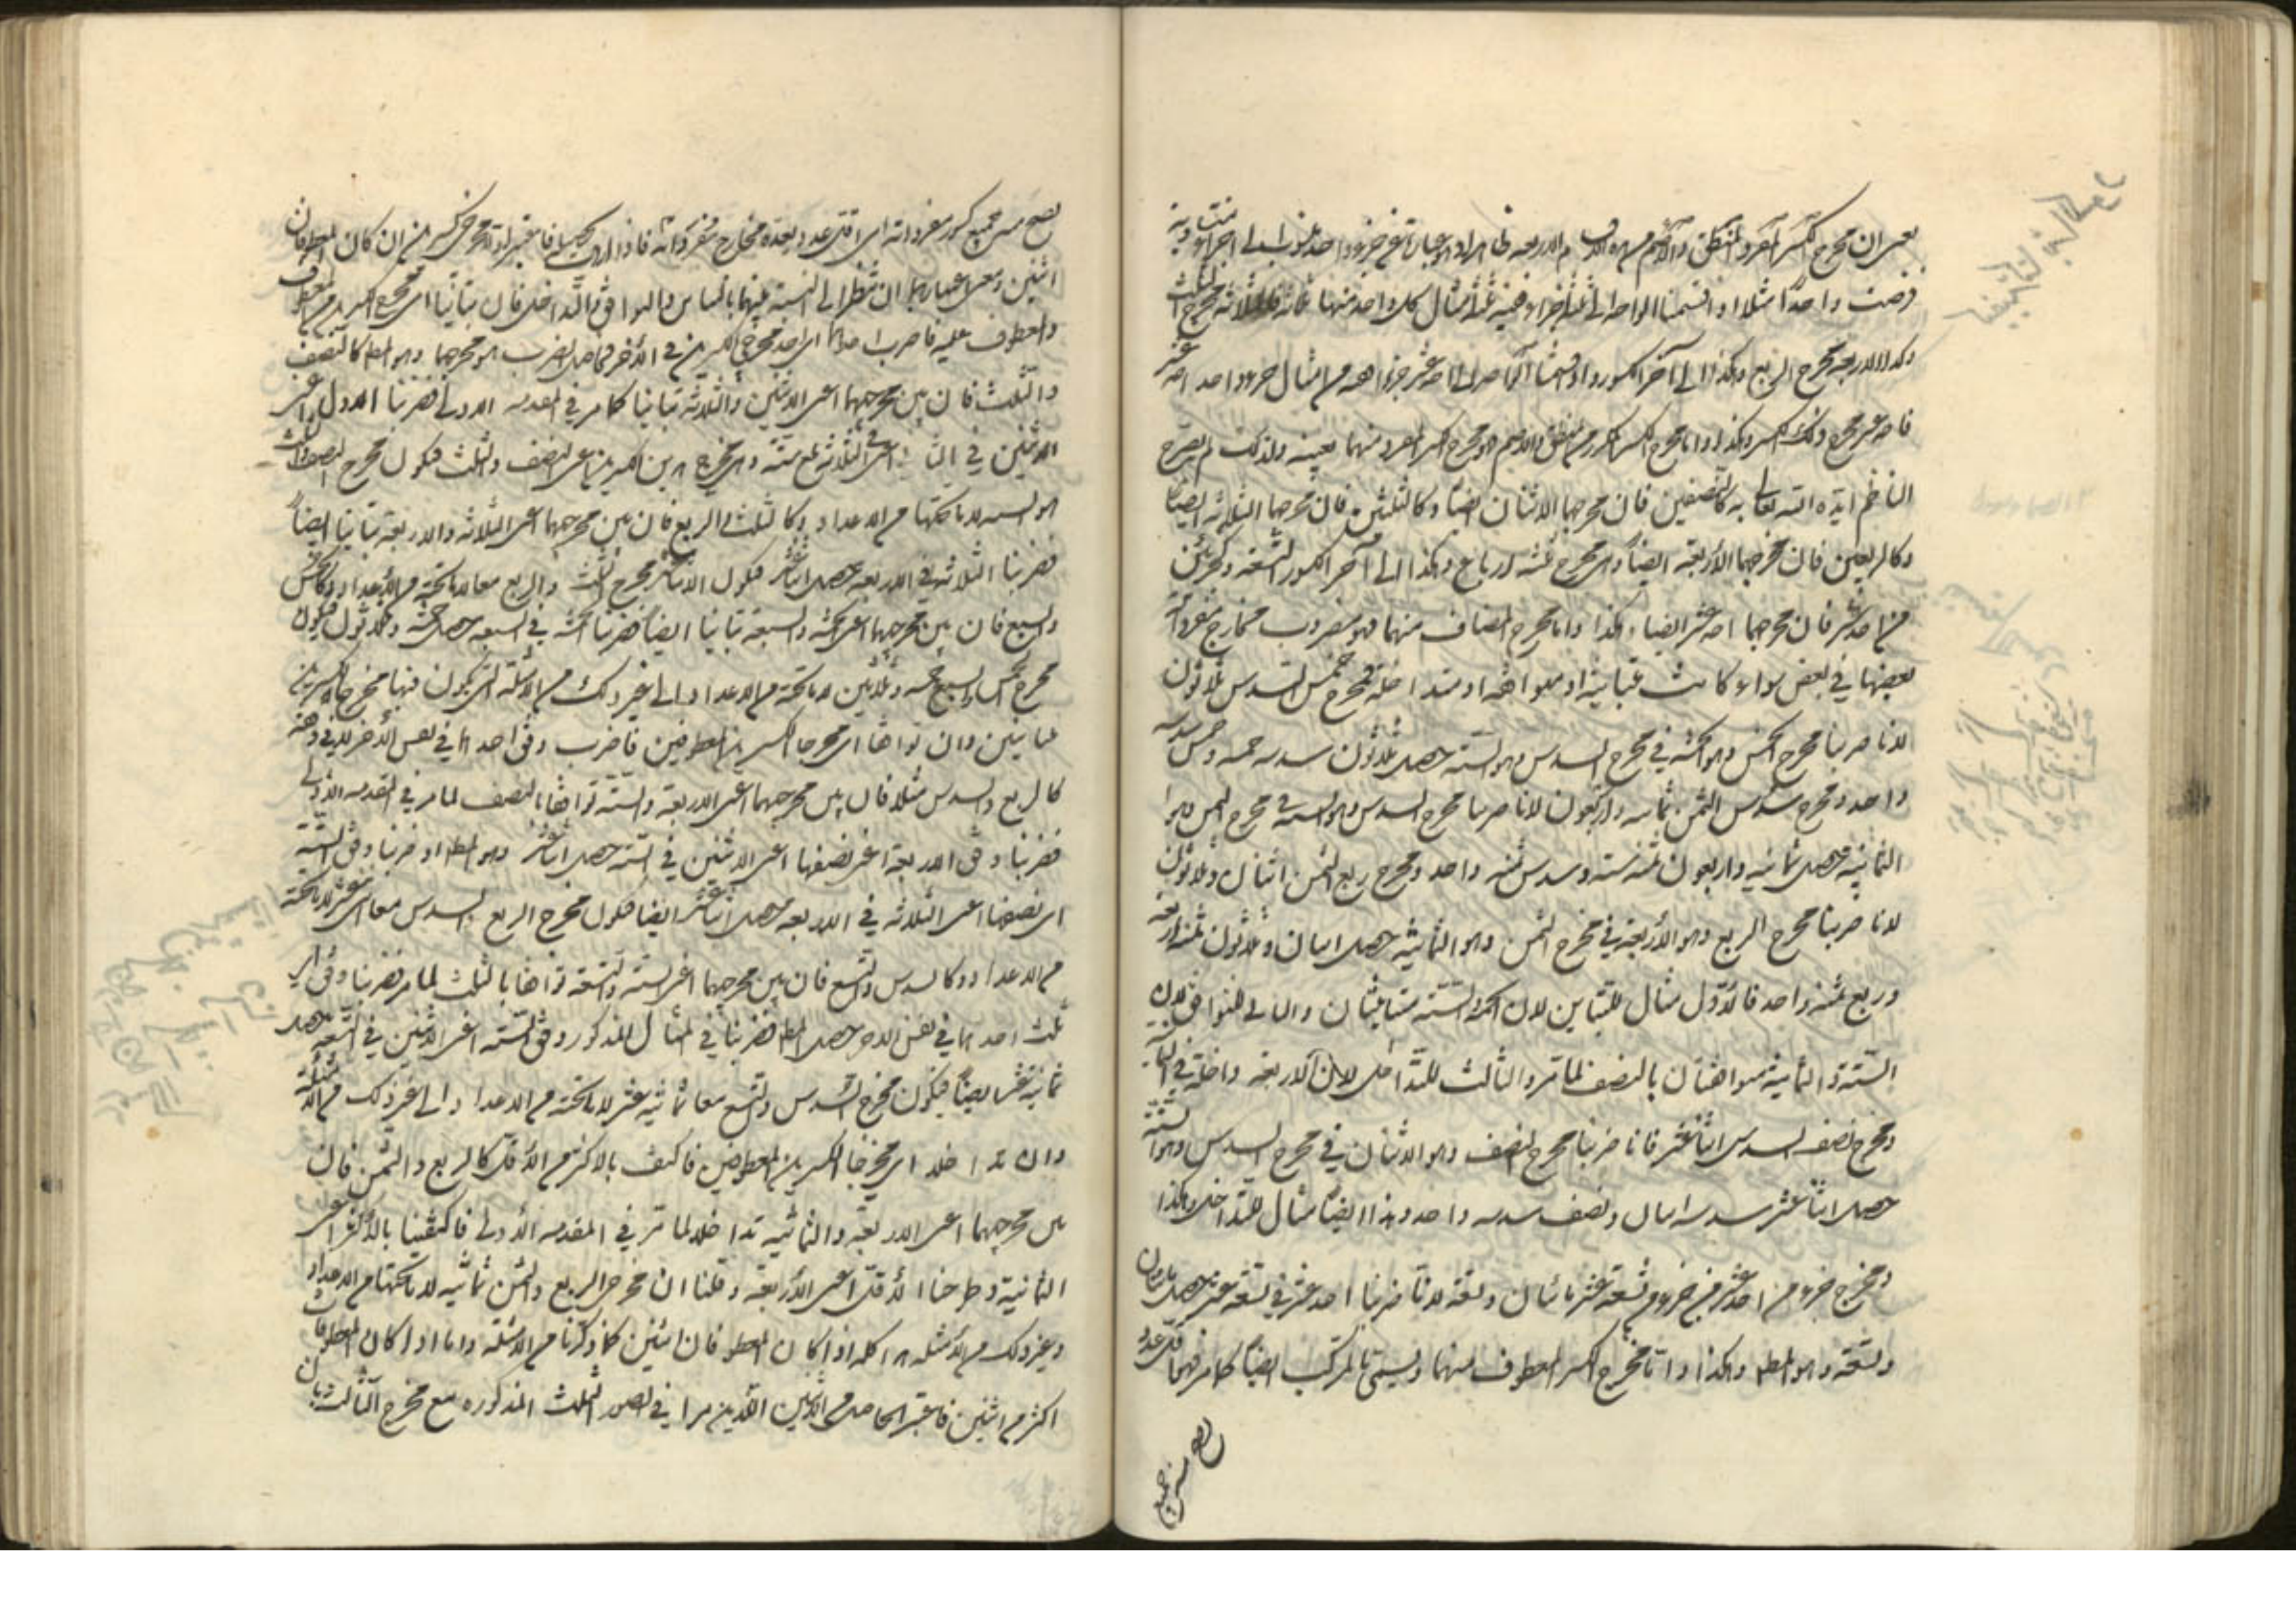 يعني ان مخرج الكسر المفرد المنطق والاصم من هذه الاقسام الاربعة ظاهر اذ هو عبارة عن جزء واحد منسوب الى اجزاء متساوية
فرضت واحدا مثلا اذ اقسمنا الواحد الى ثلثة اجزاء ففيه ثلثة امثال كل واحد منها فالثلاثة مخرج الثلث
وكذا الاربعة مخرج الربع وهكذا الى آخر الكسور واذا قسمنا الواحد الى احد عشر جزءا ففيه من امثال جزء واحد احد عشر
فاحد عشر مخرج ذلك الكسر وهكذا واما مخرج الكسر المكرر من المنطق والاصم هو مخرج الكسر المفرد منهما بعينه ولذلك لم يصرح
الناظم ايده الله تعالى به كالنصفين فان مخرجهما الاثنان ايضا وكالثلثين فان مخرجهما الثلاثة ايضا
وكالربعين فان مخرجهما الاربعة ايضا وهي مخرج ثلثة ارباع وهكذا الى آخر الكسور التسعة وكجزئين
من احد عشر فان مخرجهما احد عشر ايضا وهكذا واما مخرج المضاف منهما فهو مضروب مخارج مفرداته
بعضها في بعض سواء كانت متباينة او متوافقة او متداخلة فمخرج خمس السدس ثلاثون
لانا ضربنا مخرج الخمس وهو الخمسة في مخرج السدس وهو الستة حصل ثلاثون سدسه خمسة وخمس سدسه
واحد ومخرج سدس الثمن ثمانية واربعون لانا ضربنا مخرج السدس وهو الستة في مخرج الثمن وهو
الثمانية حصل ثمانية واربعون ثمنه ستة وسدس ثمنه واحد ومخرج ربع الثمن اثنان وثلاثون
لانا ضربنا مخرج الربع وهو الاربعة في مخرج الثمن وهو الثمانية حصل اثنان وثلاثون ثمنه اربعة
وربع ثمنه واحد فالاول مثال للتباين لان الخمسة والستة متباينتان والثاني للتوافق لان
الستة والثمانية متوافقتان بالنصف لما مر والثالث للتداخل لان الاربعة داخلة في الثمانية
ومخرج نصف السدس اثنا عشر فانا ضربنا مخرج النصف وهو الاثنان في مخرج السدس وهو الستة
حصل اثنا عشر سدسه اثنان ونصف سدسه واحد وهذا ايضا مثال للتداخل وهكذا
ومخرج جزء من احد عشر من جزء من تسعة عشر مائتان وتسعة لانا ضربنا احد عشر في تسعة عشر حصل مائتان
وتسعة وهو المط وهكذا واما مخرج الكسر المعطوف منهما ويسمى بالمركب ايضا كما مر فهو اقل عدد
يصح من جميع
يصح من جميع كسور مفرداته اي اقل عدد يعده مخارج مفرداته فاذا اردت تحصيله فاعتبر اولا مخرجي كسرين ان كان المعطوفان
اثنين ومعنى اعتبارهما ان تنظر الى النسبة بينهما بالتباين والتوافق والتداخل فان تباينا اي مخرجا الكسرين المعطوف
والمعطوف عليه فاضرب احدهما اي احد مخرجي الكسرين في الآخر فحاصل الضرب هو مخرجهما وهو المط كالنصف
والثلث فان بين مخرجيهما اعني الاثنين والثلاثة تباينا كما مر في المقدمة الاولى فضربنا الاول اعني
الاثنين في الثاني اعني الثلاثة بلغ ستة وهي مخرج هذين الكسرين اعني النصف والثلث فيكون مخرج النصف والثلث
هو الستة لا ما تحتها من الاعداد وكالثلث والربع فان بين مخرجيهما اعني الثلاثة والاربعة تباينا ايضا
فضربنا الثلاثة في الاربعة حصل اثنا عشر فيكون الاثنا عشر مخرج الثلث والربع معا لا ما تحته من الاعداد وكالخمس
والسبع فان بين مخرجيهما اعني الخمسة والسبعة تباينا ايضا فضربنا الخمسة في السبعة حصل خمسة وثلاثون فيكون
مخرج الخمس والسبع خمسة وثلاثين لا ما تحته من الاعداد والى غير ذلك من الامثلة التي يكون فيها مخرجا الكسرين
متباينين وان توافقا اي مخرجا الكسرين المعطوفين فاضرب وفق احدهما في نفس الآخر لا في وفقه
كالربع والسدس مثلا فان بين مخرجيهما اعني الاربعة والستة توافقا بالنصف لما مر في المقدمة الاولى
فضربنا وفق الاربعة اعني نصفها اعني الاثنين في الستة حصل اثنا عشر وهو المط او ضربنا وفق الستة
اي نصفها اعني الثلاثة في الاربعة حصل اثنا عشر ايضا فيكون مخرج الربع والسدس معا اثنى عشر لا ما تحته
من الاعداد وكالسدس والتسع فان بين مخرجيهما اعني الستة والتسعة توافقا بالثلث لما مر فضربنا وفق اي
ثلث احدهما في نفس الآخر حصل المط فضربنا في المثال المذكور وفق الستة اعني الاثنين في التسعة حصل
ثمانية عشر ايضا فيكون مخرج السدس والتسع معا ثمانية عشر لا ما تحته من الاعداد والى غير ذلك من الامثلة
وان تداخلا اي مخرجا الكسرين المعطوفين فاكتف بالاكثر من الاقل كالربع والثمن فان
بين مخرجيهما اعني الاربعة والثمانية تداخلا لما مر في المقدمة الاولى فاكتفينا بالاكثر اعني
الثمانية وطرحنا الاقل اعني الاربعة وقلنا ان مخرج الربع والثمن ثمانية لا ما تحتها من الاعداد
وغير ذلك من الامثلة هذا كله اذا كان المعطوفان اثنين كما ذكرنا من الامثلة واما اذا كان المعطوفات
اكثر من اثنين فاعتبر الحاصل من الاثنين اللذين مرا في الصور الثلث المذكورة مع مخرج الثالث بان